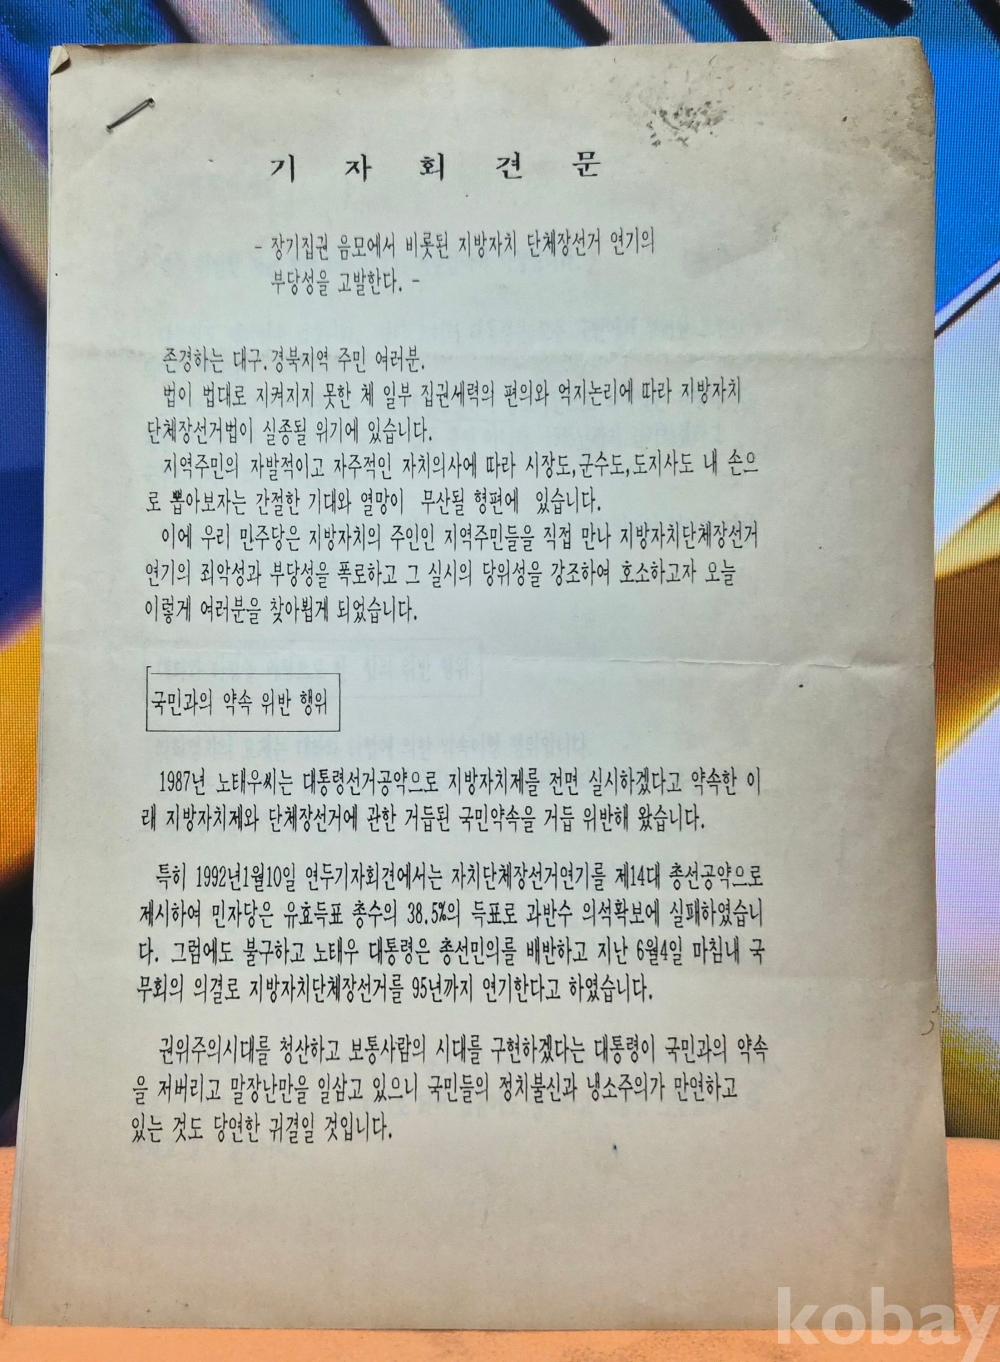 기 자 회 견 문
- 장기집권 음모에서 비롯된 지방자치 단체장선거 연기의
부당성을 고발한다. -
존경하는 대구.경북지역 주민 여러분.
법이 법대로 지켜지지 못한 체 일부 집권세력의 편의와 억지논리에 따라 지방자치
단체장선거법이 실종될 위기에 있습니다.
지역주민의 자발적이고 자주적인 자치의사에 따라 시장도,군수도,도지사도 내 손으
로 뽑아보자는 간절한 기대와 열망이 무산될 형편에 있습니다.
이에 우리 민주당은 지방자치의 주인인 지역주민들을 직접 만나 지방자치단체장선거
연기의 죄악성과 부당성을 폭로하고 그 실시의 당위성을 강조하여 호소하고자 오늘
이렇게 여러분을 찾아뵙게 되었습니다.
국민과의 약속 위반 행위
1987년 노태우씨는 대통령선거공약으로 지방자치제를 전면 실시하겠다고 약속한 이
래 지방자치제와 단체장선거에 관한 거듭된 국민약속을 거듭 위반해 왔습니다.
특히 1992년1월10일 연두기자회견에서는 자치단체장선거연기를 제14대 총선공약으로
제시하여 민자당은 유효득표 총수의 38.5%의 득표로 과반수 의석확보에 실패하였습니
다. 그럼에도 불구하고 노태우 대통령은 총선민의를 배반하고 지난 6월4일 마침내 국
무회의 의결로 지방자치단체장선거를 95년까지 연기한다고 하였습니다.
권위주의시대를 청산하고 보통사람의 시대를 구현하겠다는 대통령이 국민과의 약속
을 저버리고 말장난만을 일삼고 있으니 국민들의 정치불신과 냉소주의가 만연하고
있는 것도 당연한 귀결일 것입니다.
kobay